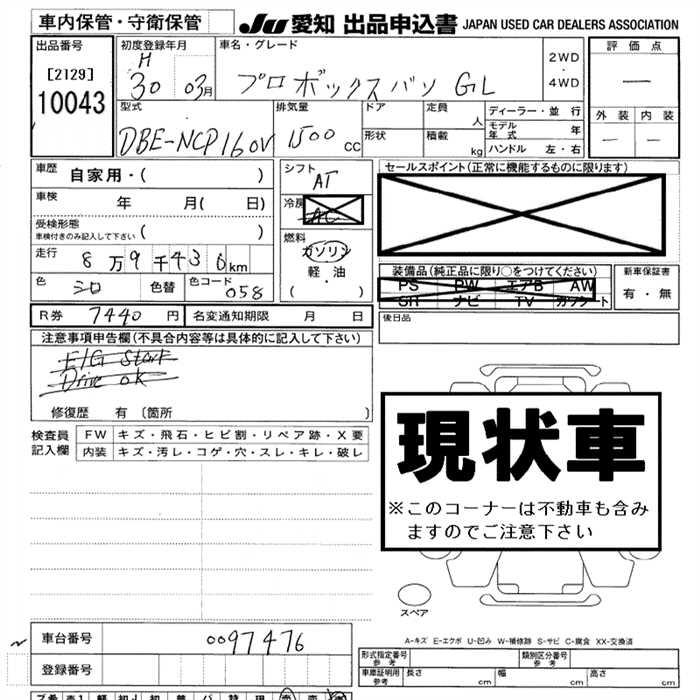 車内保管・守衛保管
JU 愛知 出品申込書 JAPAN USED CAR DEALERS ASSOCIATION
出品番号 初度登録年月 車名・グレード 評価点
[2129] H 2WD
10043 30 03月 プロボックスバン GL ・ 4WD —
型式 排気量 ドア 定員 人 ディーラー・並行 外装 内装
モデル年式 年
DBE-NCP160V 1500 CC 形状 積載 kg ハンドル 左・右 — —
車歴 自家用・( ) シフト セールスポイント(正常に機能するものに限ります)
AT
車検 年 月( 日) 冷房 AC
受検形態 ( )
車検付きのみ記入して下さい 燃料
走行 8万9千436km ガソリン 装備品(純正品に限り○をつけてください) 新車保証書
軽油 PS PW エアB AW
色 シロ 色替 色コード 058 ・ SR ナビ TV カワシート 有・無
( )
R券 7440 円 名変通知期限 月 日 後日品
注意事項申告欄(不具合内容等は具体的に記入して下さい)
E/G Start
Drive OK
修復歴 有 〔箇所 〕
検査員 FW キズ・飛石・ヒビ割・リペア跡・X要
記入欄 内装 キズ・汚レ・コゲ・穴・スレ・キレ・破レ
現状車
※このコーナーは不動車も含み
ますのでご注意下さい
スペア
A-キズ E-エクボ U-凹み W-補修跡 S-サビ C-腐食 XX-交換済
車台番号 0097476
形式指定番号 参考 類別区分番号 参考
登録番号 車庫証明用 参考 長さ cm 幅 cm 高さ cm